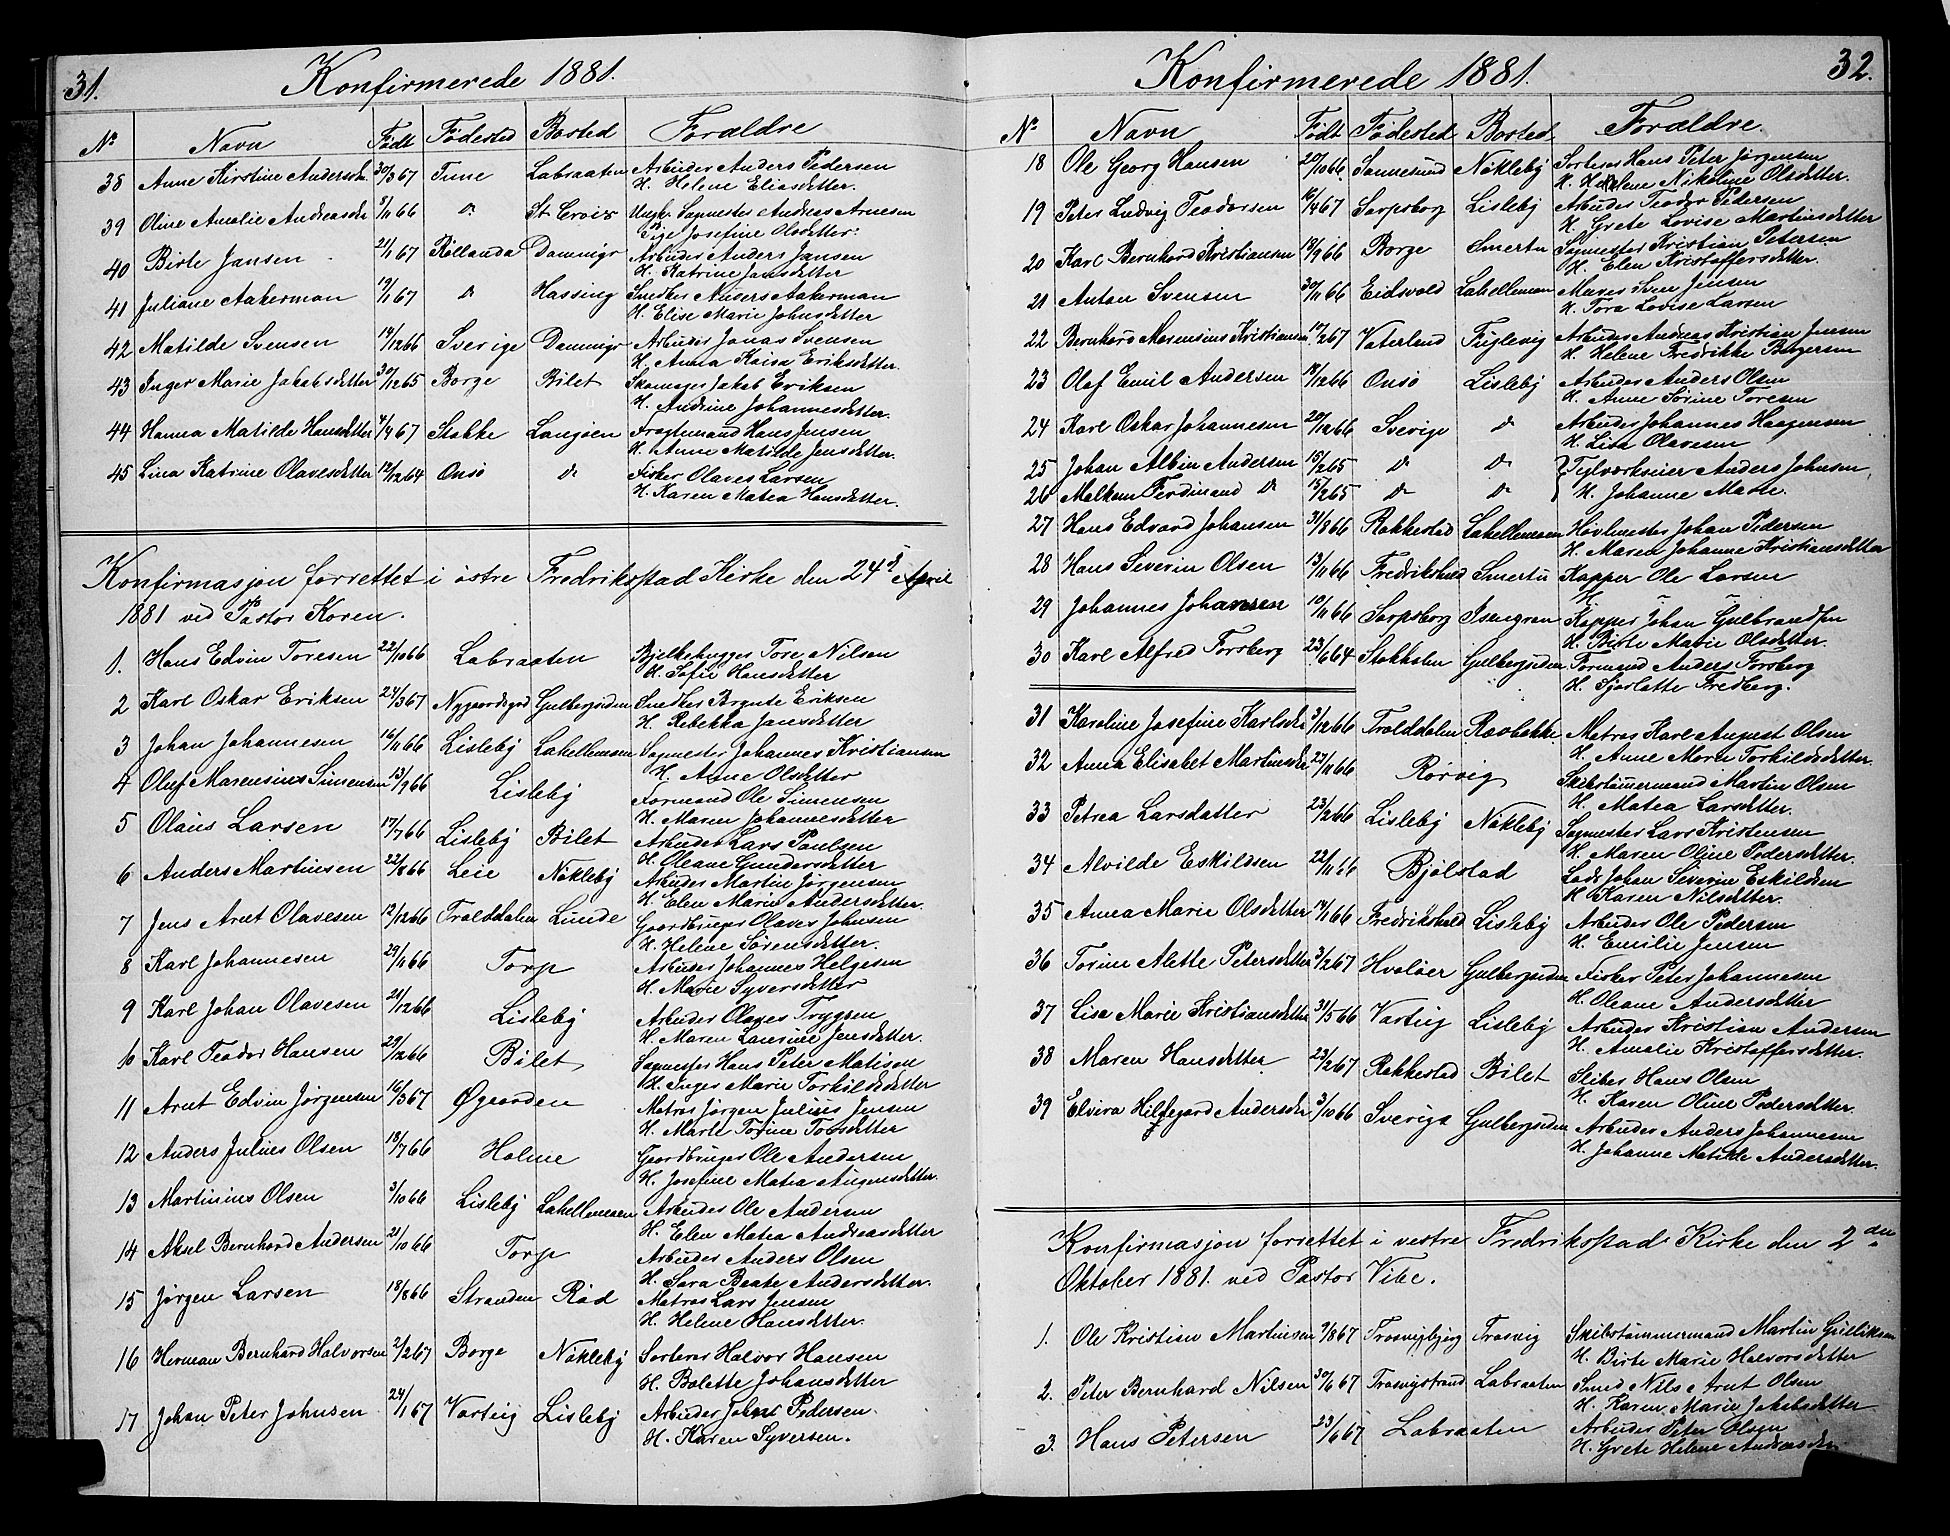 31.
Konfirmerede 1881.
No Navn Født Fødested Bosted Forældre
38 Anne Kirstine Andersdr. 30/3 67 Tune Labraaten Arbeider Anders Pedersen
H. Helene Eliasdatter.
39 Oline Amalie Andreasdr 5/11 66 do St. Croix Ungk. Sagmester Andreas Arnesen
Pige Josefine Olsdatter.
40 Birte Jansen 21/1 67 Rollanda Damnigr Arbeider Anders Jansen
H. Katrine Jansdatter
41 Juliane Aakerman 19/1 67 do Hassing Snedker Anders Aakerman
H. Elise Marie Johnsdatter
42 Matilde Svensen 14/12 66 Sverige Damnigr Arbeider Jonas Svensen
H. Anna Kaisa Eriksdatter.
43 Inger Marie Jakobsdatter 30/12 65 Borge Bilet Skomager Jakob Eriksen
H. Andrine Johannesdatter.
44 Hanna Matilde Hansdatter 4/4 67 Stokke Langøen Fragtemand Hans Jensen
H. Anne Matilde Jensdatter.
45 Lina Katrine Olavesdatter 12/12 64 Onsø do Fisker Olaves Larsen
H. Karen Matea Hansdatter.
Konfirmasjon forrettet i østre Fredrikstad Kirke den 24de April
1881 ved Pastor Koren.
1. Hans Edvin Toresen 22/10 66 Labraaten Bjelkehugger Tore Nilsen
H. Sofie Hansdatter
2 Karl Oskar Eriksen 24/3 67 Nygaardsgad Gulbergsiden Snedker Brynte Eriksen
H. Rebekka Jansdatter
3 Johan Johannesen 16/11 66 Lisleby Lahellemoen Sagmester Johannes Kristiansen
H. Anne Olsdatter
4 Oluf Marensius Simensen 13/9 66 Lisleby Formand Ole Simensen
H. Maren Johannesdatter
5 Olaus Larsen 17/7 66 Lisleby Bilet Arbeider Lars Paulsen
H. Oleane Gundersdatter
6 Anders Martinsen 22/8 66 Leie Nøkleby Arbeider Martin Jørgensen
H. Elen Marie Andersdatter.
7 Jens Arnt Olavesen 12/12 66 Trolddalen Lunde Gaardbruger Olaves Johnsen
H. Helene Sørensdatter.
8 Karl Johannesen 29/11 66 Torp Arbeider Johannes Helgesen
H. Marie Syversdatter
9 Karl Johan Olavesen 21/12 66 Lisleby Arbeider Olaves Trygsen
H. Maren Laurine Jensdatter.
10 Karl Teodor Hansen 29/12 66 Bilet Sagmester Hans Peter Matisen
H. Inger Marie Torkildsdatter
11 Arnt Edvin Jørgensen 16/3 67 Øgaarden Matros Jørgen Julius Jensen
H. Marte Torine Torsdatter
12 Anders Julius Olsen 18/7 66 Holme Gaardbruger Ole Andersen
H. Josefine Matea Augensdatter.
13 Martinius Olsen 3/10 66 Lisleby Lahellemoen Arbeider Ole Andersen
H. Elen Matea Andreasdatter
14 Aksel Bernhard Andersen 21/10 66 Torp Arbeider Anders Olsen
H. Sara Beate Andersdatter.
15 Jørgen Larsen 18/8 66 Stranden Rød Matros Lars Jensen
H. Helene Hansdatter.
16 Herman Bernhard Halvorsen 2/2 67 Borge Nøkleby Sorterer Halvor Hansen
H. Bolette Johansdatter
17 Johan Peter Johnsen 24/1 67 Varteig Lisleby Arbeider John Pedersen.
H. Karen Syversen.
32.
Konfirmerede 1881.
No Navn Født Fødested Bosted Forældre.
18 Ole Georg Hansen 20/10 66 Sannesund Nøkleby Sorterer Hans Peter Jørgensen
H. Helene Nikoline Olsdatter.
19 Peter Ludvig Teodorsen 16/4 67 Sarpsborg Lisleby Arbeider Teodor Petersen
H. Grete Lovise Martinsdatter
20 Karl Bernhard Kristiansen 18/9 66 Borge Smertu Sagmester Kristian Petersen
H. Elen Kristoffersdatter.
21 Anton Svensen 30/11 66 Eidsvold Lahellemoen Murer Sven Jensen
H. Tora Lovise Larsen
22 Bernhard Marensius Kristiansen 17/2 67 Vaterland Fuglevig Arbeider Andreas Kristian Jensen
H. Helene Fredrikke Birgersen
23 Olaf Emil Andersen 14/12 66 Onsø Lisleby Arbeider Anders Olsen
H. Anne Sørine Toresen
24 Karl Oskar Johannesen 20/12 66 Sverige do Arbeider Johannes Haagensen
H. Lisa Olavesen
25 Johan Albin Andersen 15/2 65 do do Teglværkseier Anders Johnsen
26 Malkum Ferdinand do 15/2 65 do do H. Johanne Marie.
27 Hans Edvard Johansen 31/8 66 Rakkestad Lahellemoen Høvlmester Johan Pedersen
H. Maren Johanne Kristiansdatter
28 Hans Severin Olsen 13/11 66 Fredrikshald Smertu Kapper Ole Larsen
H.
29 Johannes Johansen 10/11 66 Sarpsborg Isengran Kapper Johan Gulbrandsen
H. Birte Marie Olsdatter.
30 Karl Alfred Forsberg 23/6 64 Stokholm Gulbergsiden Formand Anders Forsberg
H. Sjarlatte Fredberg.
31 Karoline Josefine Karlsdr 3/12 66 Trolddalen Ravbakke. Matros Karl August Olsen
H. Anne Marie Torkildsdatter.
32 Anna Elisabet Martinsdr 27/11 66 Rørvig Skibstømmermand Martin Olsen
H. Matea Larsdatter.
33 Petrea Larsdatter 23/2 66 Lisleby Nøkleby Sagmester Lars Kristensen
H. Maren Oline Pedersdatter.
34 Alvilde Eskildsen 22/11 66 Bjølstad Lods Johan Severin Eskildsen
H. Karen Nilsdatter.
35 Anna Marie Olsdatter 14/1 66 Fredrikshald Lisleby Arbeider Ole Pedersen
H. Emilie Jensen
36 Torine Alette Petersdatter 3/2 67 Hvaløer Gulbergsiden Fisker Peter Johannesen
H. Oleane Andersdatter
37 Lise Marie Kristiansdatter 31/5 66 Varteig Lisleby Arbeider Kristian Andersen
H. Amalie Kristoffersdatter.
38 Maren Hansdatter 23/2 67 Rakkestad Bilet Skiber Hans Olsen
H. Karen Oline Pedersdatter.
39 Elvira Hildegard Andersdr 3/10 66 Sverige Gulbergsiden Arbeider Anders Johannesen
H. Johanne Matilde Andersdatter.
Konfirmasjon forrettet i vestre Fredrikstads Kirke den 2den
Oktober 1881. ved Pastor Vibe.
1. Ole Kristian Martinsen 9/8 67 Trosvigbjerg Trosvig Skibstømmermand Martin Gulliksen
H. Birte Marie Halvorsdatter
2. Peter Bernhard Nilsen 30/6 67 Trosvigstrand Labraaten Smed Nils Arnt Olsen
H. Karen Marie Jakobsdatter
3. Hans Petersen 23/6 67 Labraaten Arbeider Peter Olsen
H. Grete Helene Andreasdr